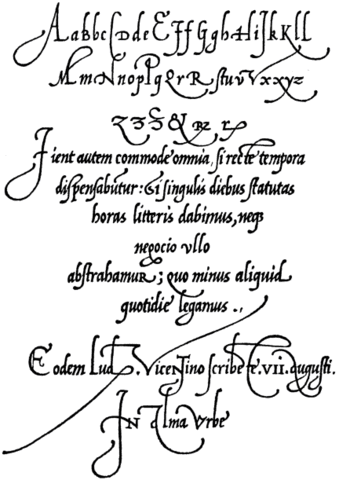 AabbcCDdeEffGgbHiJkKll
MmNnopPqQrRſtuvVxxyz
Fient autem commode omnia, ſi recte tempora
diſpenſabūtur: Et ſi ſingulis diebus ſtatutas
horas litteris dabimus, neqȝ
negocio vllo
abſtrahamuR; quo minus aliquid
quotidie legamus .,
Eodem Lud. Vicentino ſcribēte. VII. auguſti.
IN Alma Vrbe